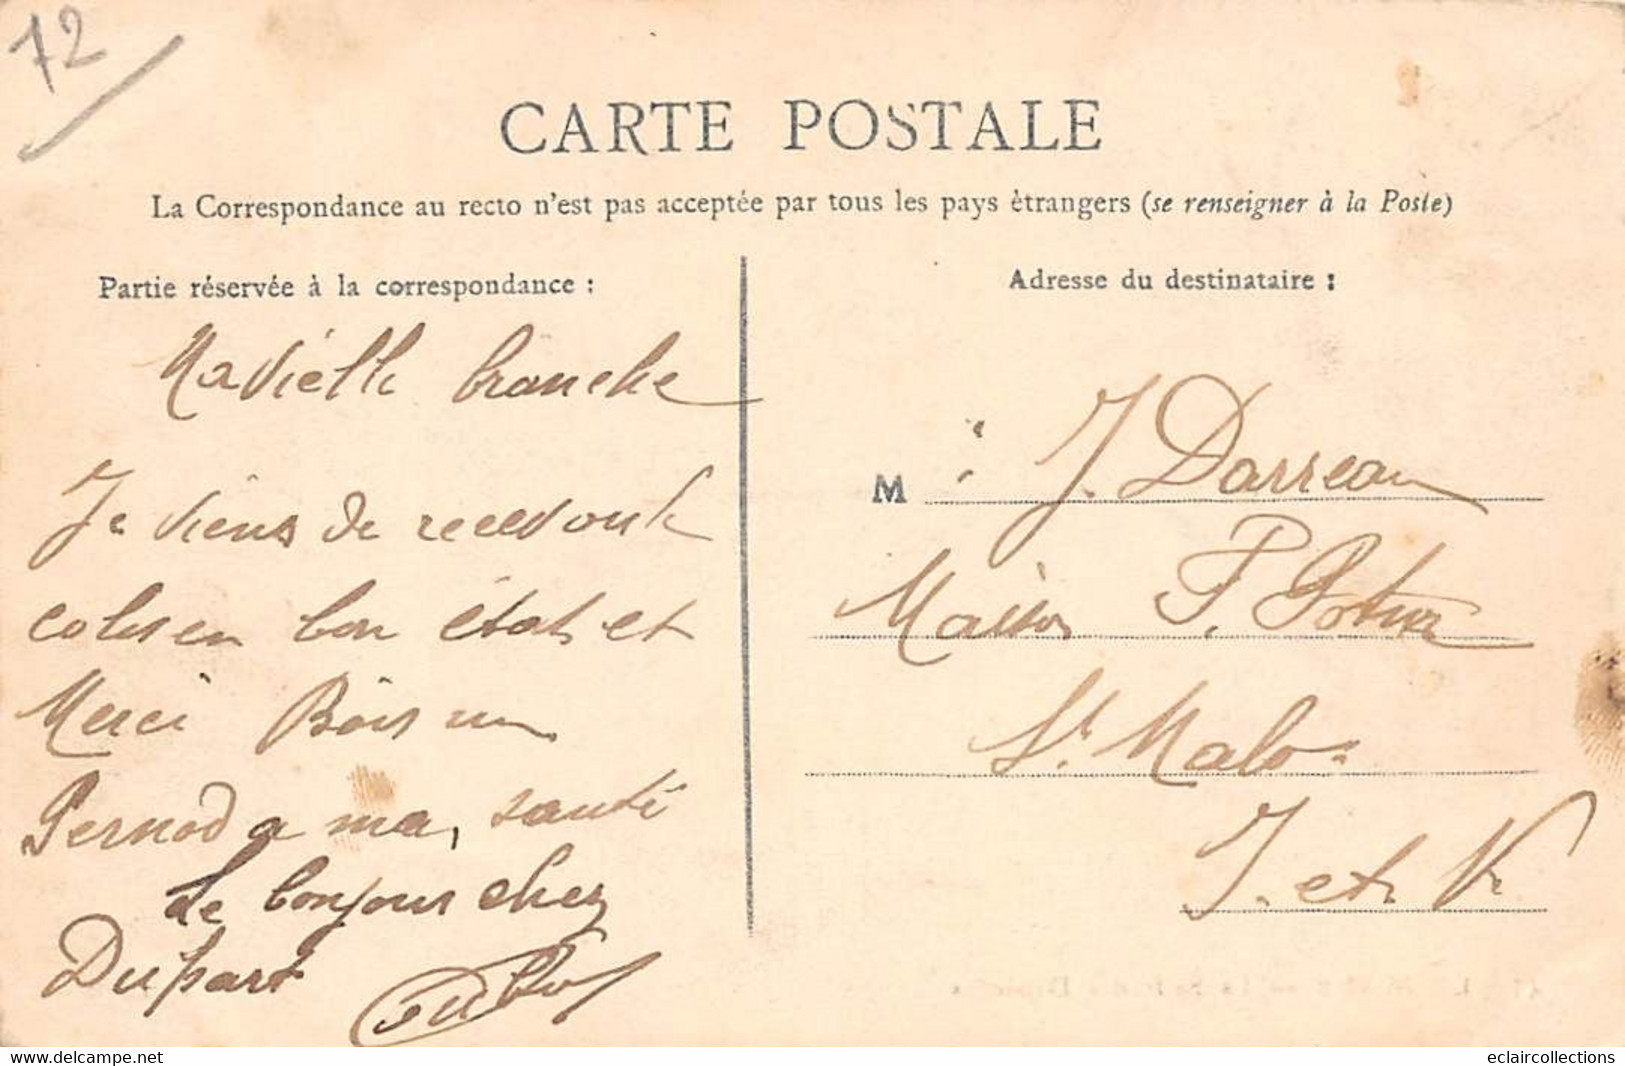 72
CARTE POSTALE
La Correspondance au recto n'est pas acceptée par tous les pays étrangers (se renseigner à la Poste)
Partie réservée à la correspondance :
Ma Vieille branche
Je viens de recevoir le
colis en bon état et
Merci Bois un
Pernod a ma santé
Le bonjour chez
Dupart
Adresse du destinataire :
M J. Darreau
Maison P.
St. Malo
I. et V.
www.delcampe.net
eclaircollections